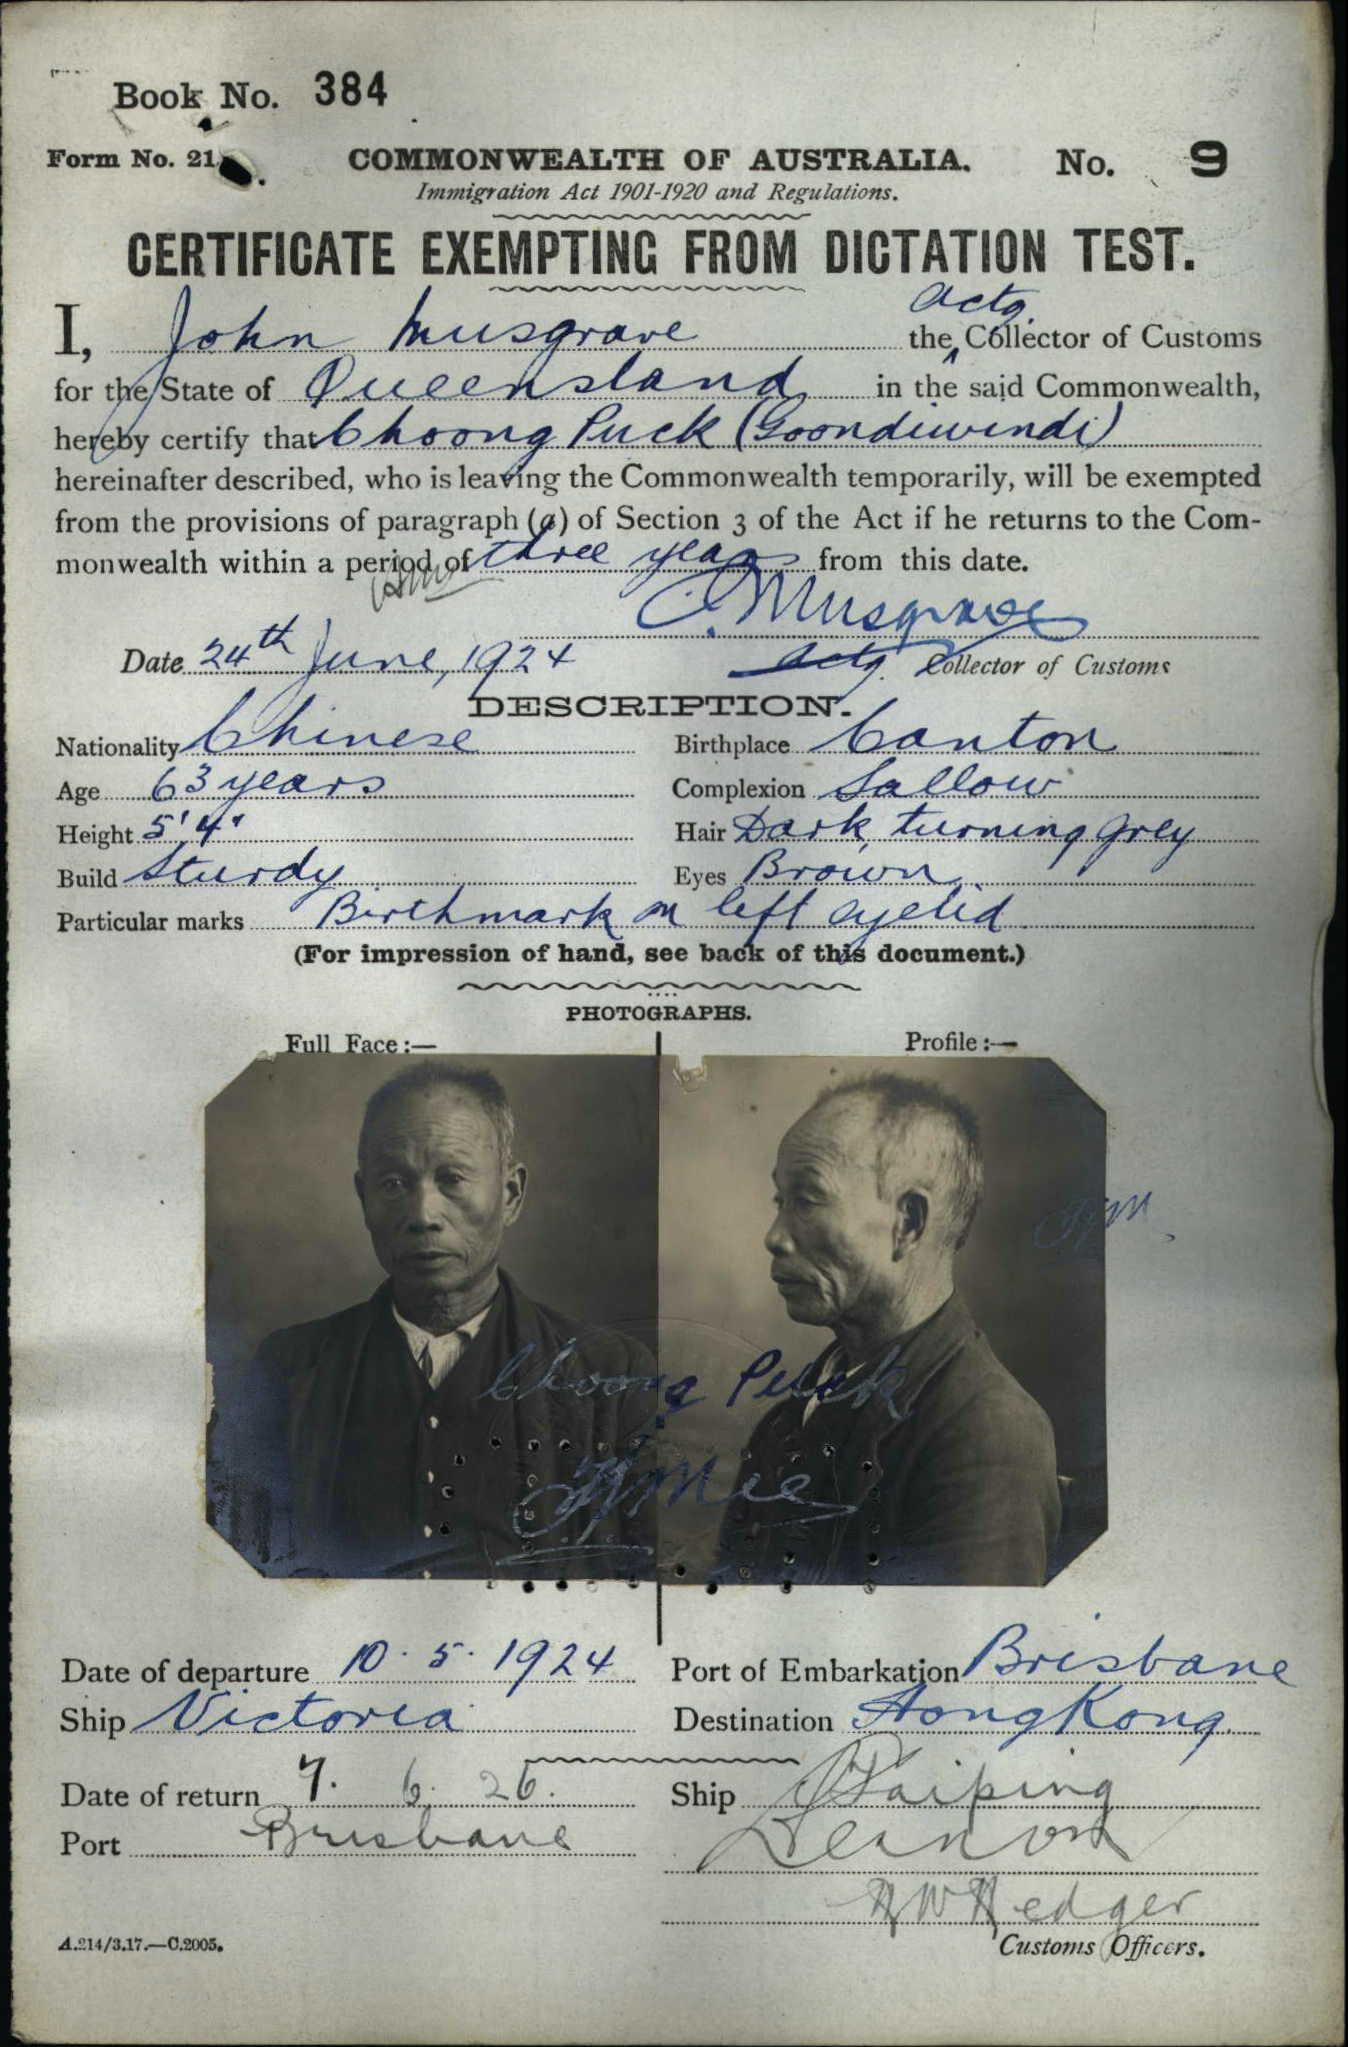 Book No. 384
Form No. 21.
COMMONWEALTH OF AUSTRALIA. No. 9
Immigration Act 1901-1920 and Regulations.
CERTIFICATE EXEMPTING FROM DICTATION TEST.
actg.
I, John Musgrave the Collector of Customs
for the State of Queensland in the said Commonwealth,
hereby certify that Choong Puck (Goondiwindi)
hereinafter described, who is leaving the Commonwealth temporarily, will be exempted
from the provisions of paragraph (a) of Section 3 of the Act if he returns to the Com-
monwealth within a period of three years from this date.
J. Musgrave
Date 24th June, 1924 Actg. Collector of Customs
DESCRIPTION.
Nationality Chinese Birthplace Canton
Age 63 years Complexion Sallow
Height 5' 4" Hair Dark, turning grey
Build Sturdy Eyes Brown
Particular marks Birthmark on left eyelid
(For impression of hand, see back of this document.)
PHOTOGRAPHS.
Full Face :— Profile :—
Choong Puck
Date of departure 10. 5. 1924 Port of Embarkation Brisbane
Ship Victoria Destination HongKong
Date of return 7. 6. 26. Ship Taiping
Port Brisbane
Hedger
A.214/3.17.—C.2005. Customs Officers.